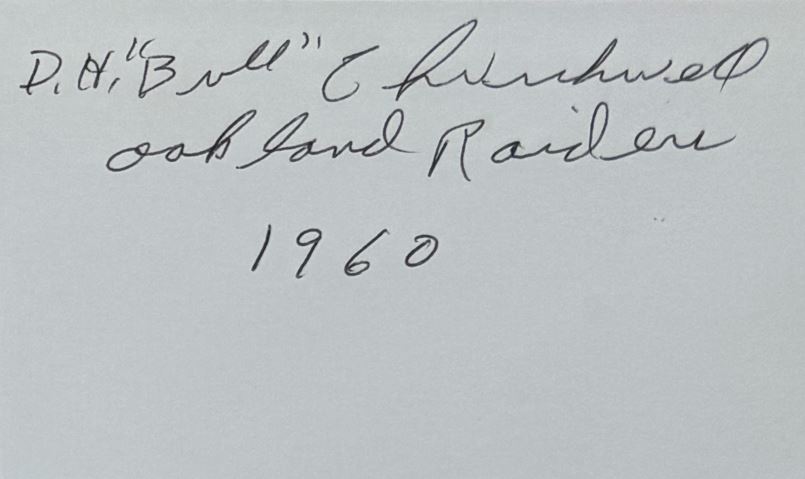 D.H. "Bull" Churchwell
Oakland Raiders
1960